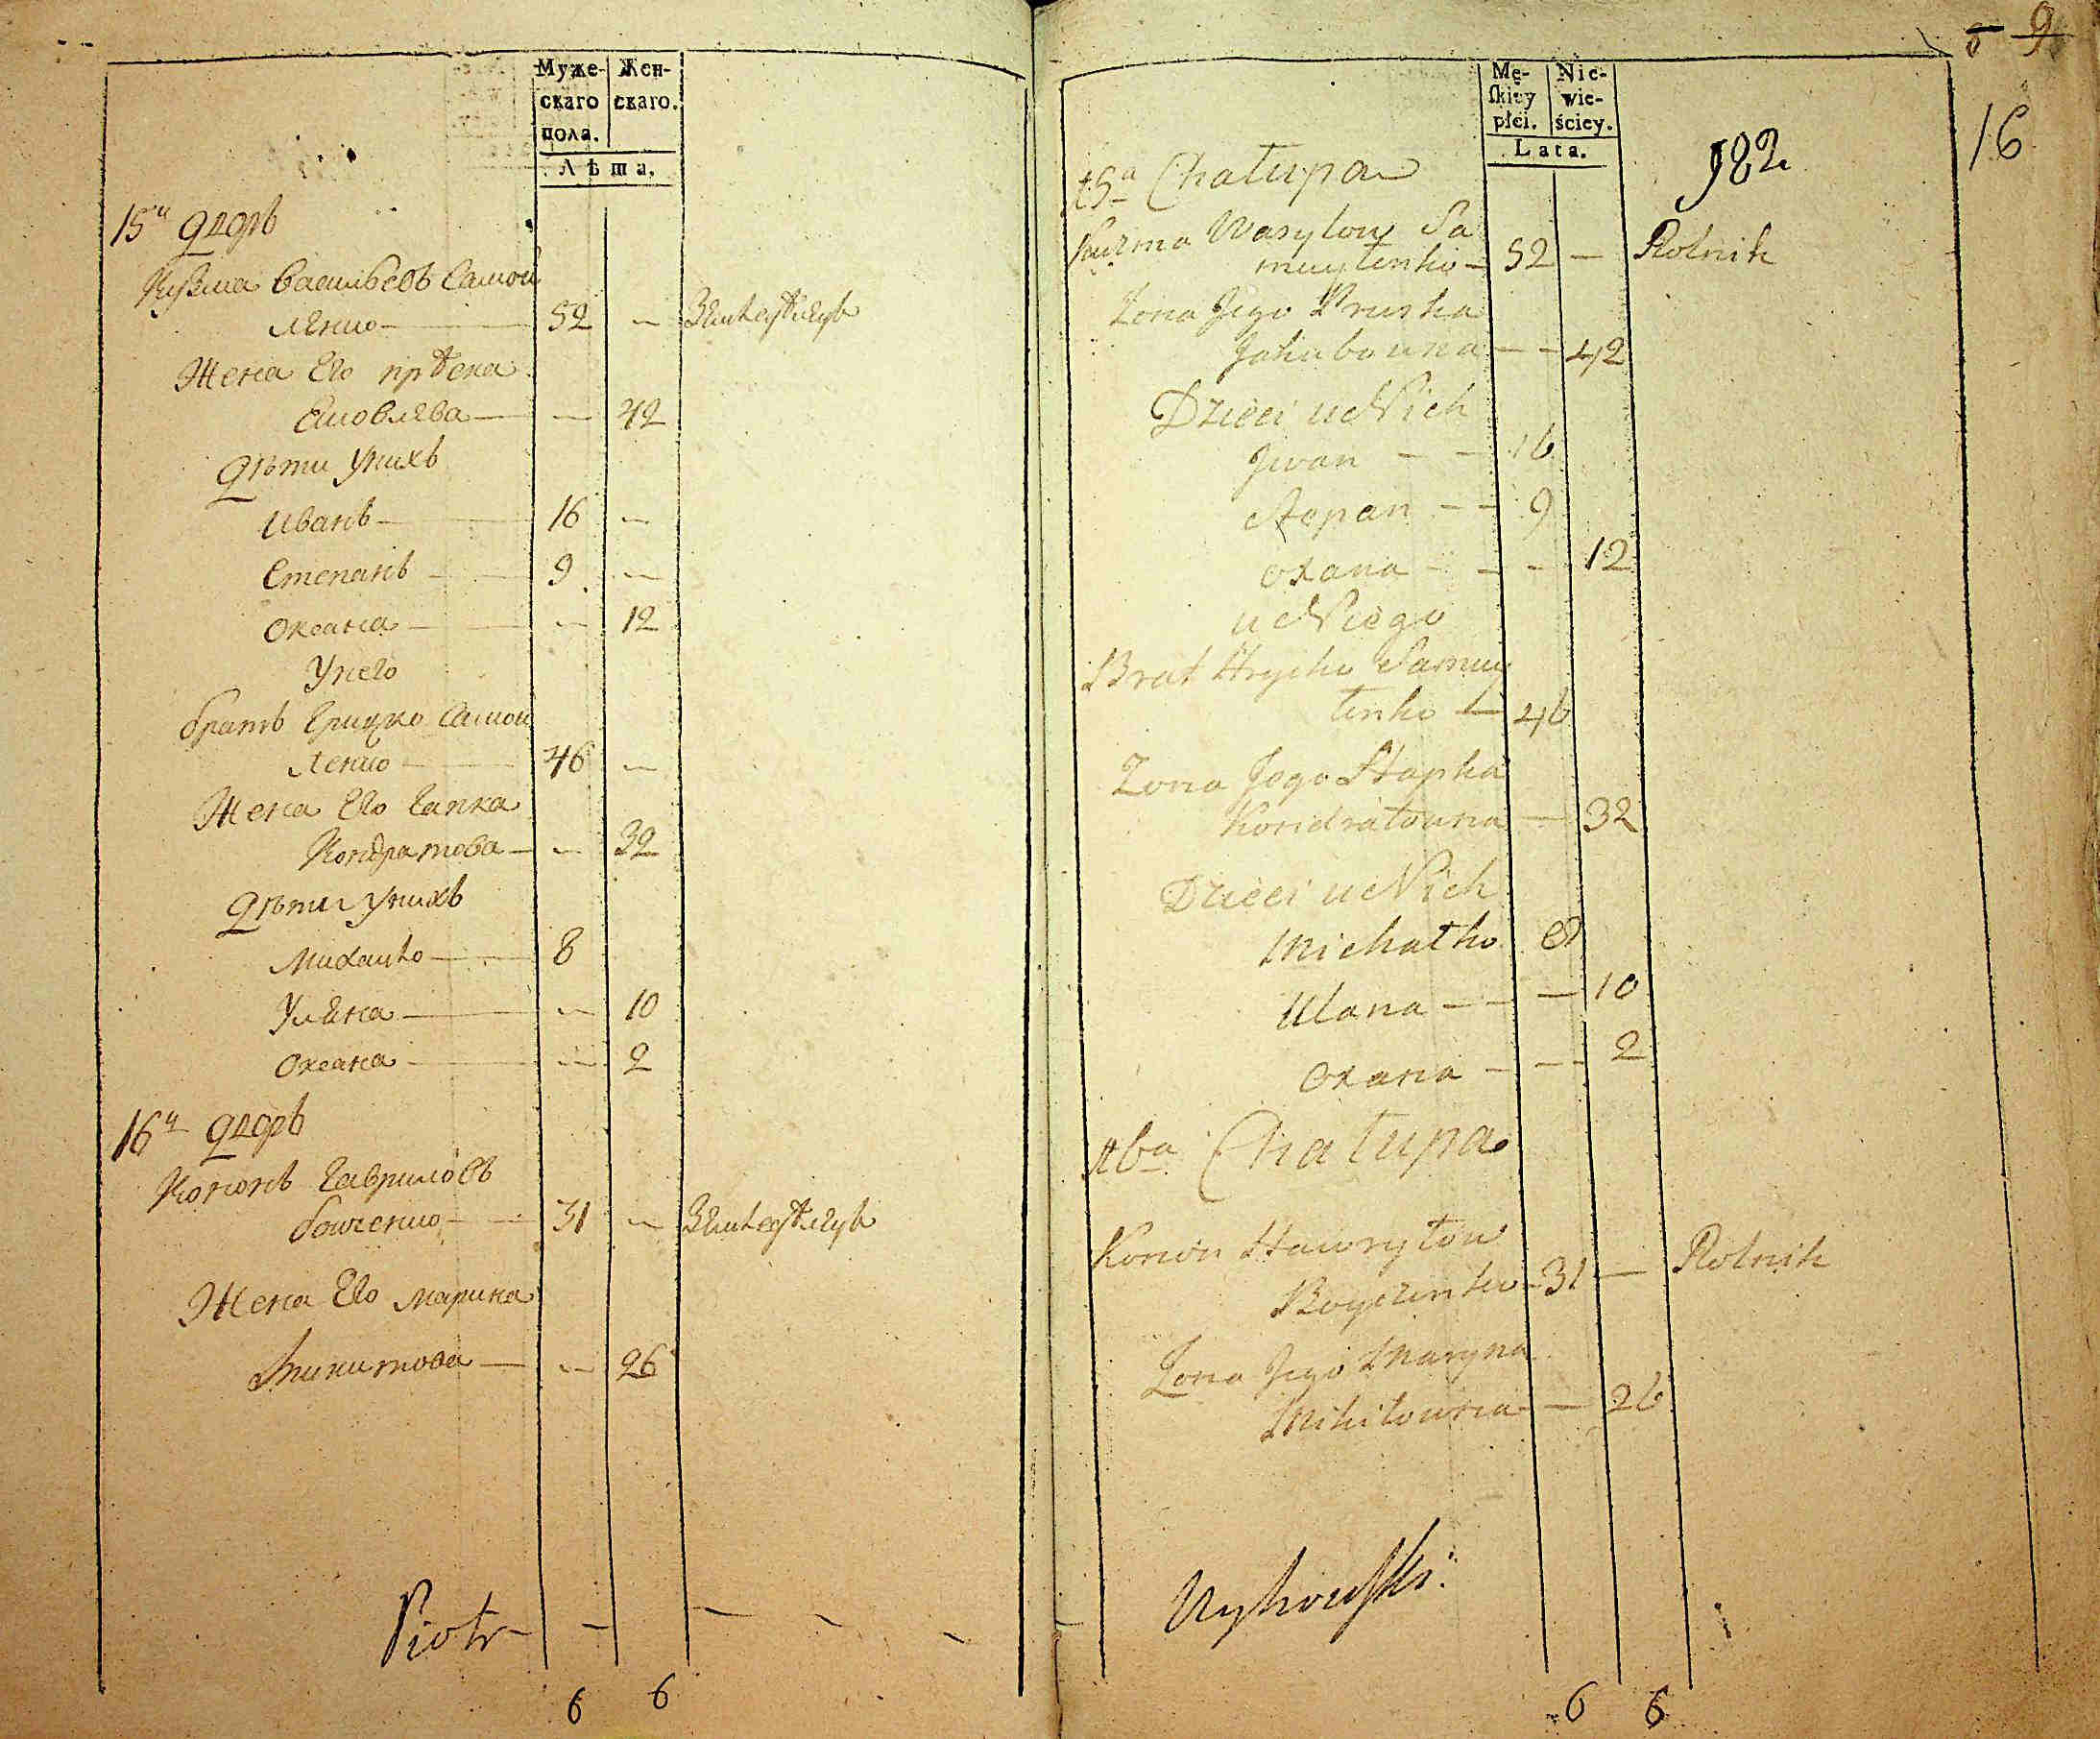 Муже-
скаго
пола.
Жен-
скаго.
Лѣта.
15й дворъ
Кузма Васильевъ Самой
ленко — 52 — Земледѣлецъ
Жена Его прѣска
Яковлева — — 42
Дѣти унихъ
Иванъ — 16 —
Степанъ — 9 —
Оксана — — 12
Унего
братъ Грицко Самой
ленко — 46 —
Жена Его Гапка
Кондратова — — 32
Дѣти унихъ
Михайло — 8
Уляна — — 10
Оксана — — 2
16й дворъ
Кононъ Гавриловъ
бойченко — 31 — Земледѣлецъ
Жена Его Марина
Микитова — — 26
Piotr — — — — —
6 6
9
16
182
Mę-
skiey
płci.
Nie-
wie-
ściey.
Lata.
15a Chałupa
Kuzma Wasylow Sa
muyłenko — 52 — Rolnik
Żona Jego Pruska
Jakubowna — — 42
Dzieci u Nich
Jwan — — 16
Stepan — — 9
Oxana — — — 12
u Niego
Brat Hrycko Samuy
łenko — 46
Żona Jego Hapka
Kondratowna — 32
Dzieci u Nich
Michałko 8
Ulana — — — 10
Oxana — — — 2
16a Chałupa
Konon Hawryłow
Boyczenko — 31 — Rolnik
Żona Jego Maryna
Mikitowna — — 26
Wyhowski.
6 6